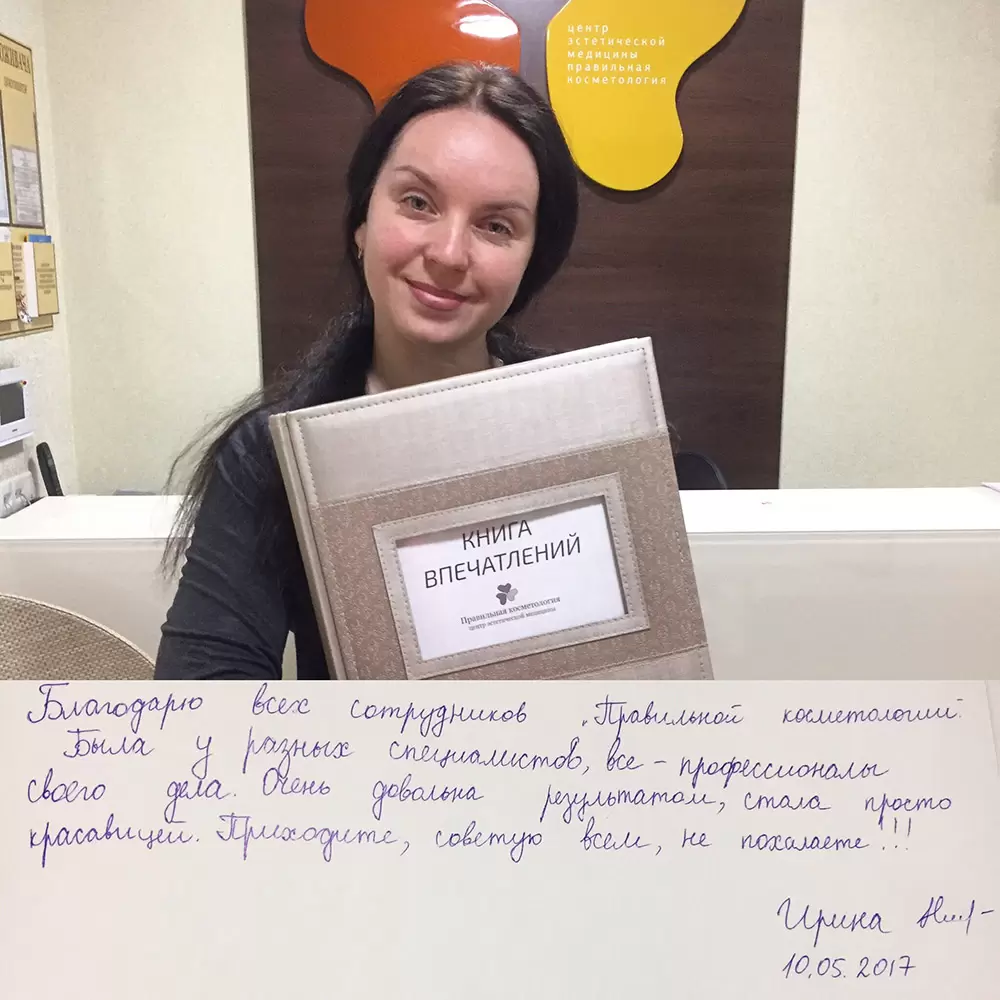 центр
эстетической
медицины
правильная
косметология
КНИГА
ВПЕЧАТЛЕНИЙ
Правильная косметология
центр эстетической медицины
Благодарю всех сотрудников „Правильной косметологии.
Была у разных специалистов, все – профессионалы
своего дела. Очень довольна результатом, стала просто
красавицей. Приходите, советую всем, не пожалеете!!!
Ирина
10.05.2017